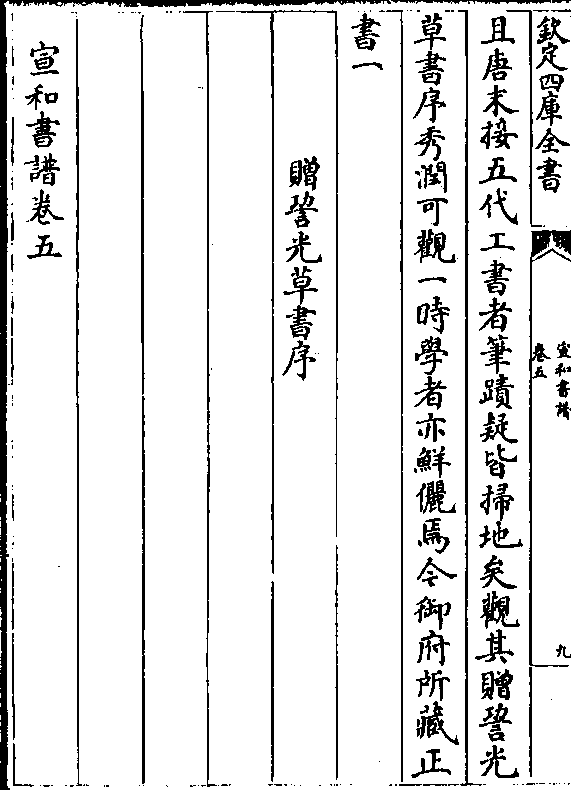 欽定四庫全書
宣和書譜
卷五
九
且唐末接五代工書者筆蹟疑皆掃地矣觀其贈䛒光
草書序秀潤可觀一時學者亦鮮儷焉今御府所藏正
書一
贈䛒光草書序
宣和書譜卷五